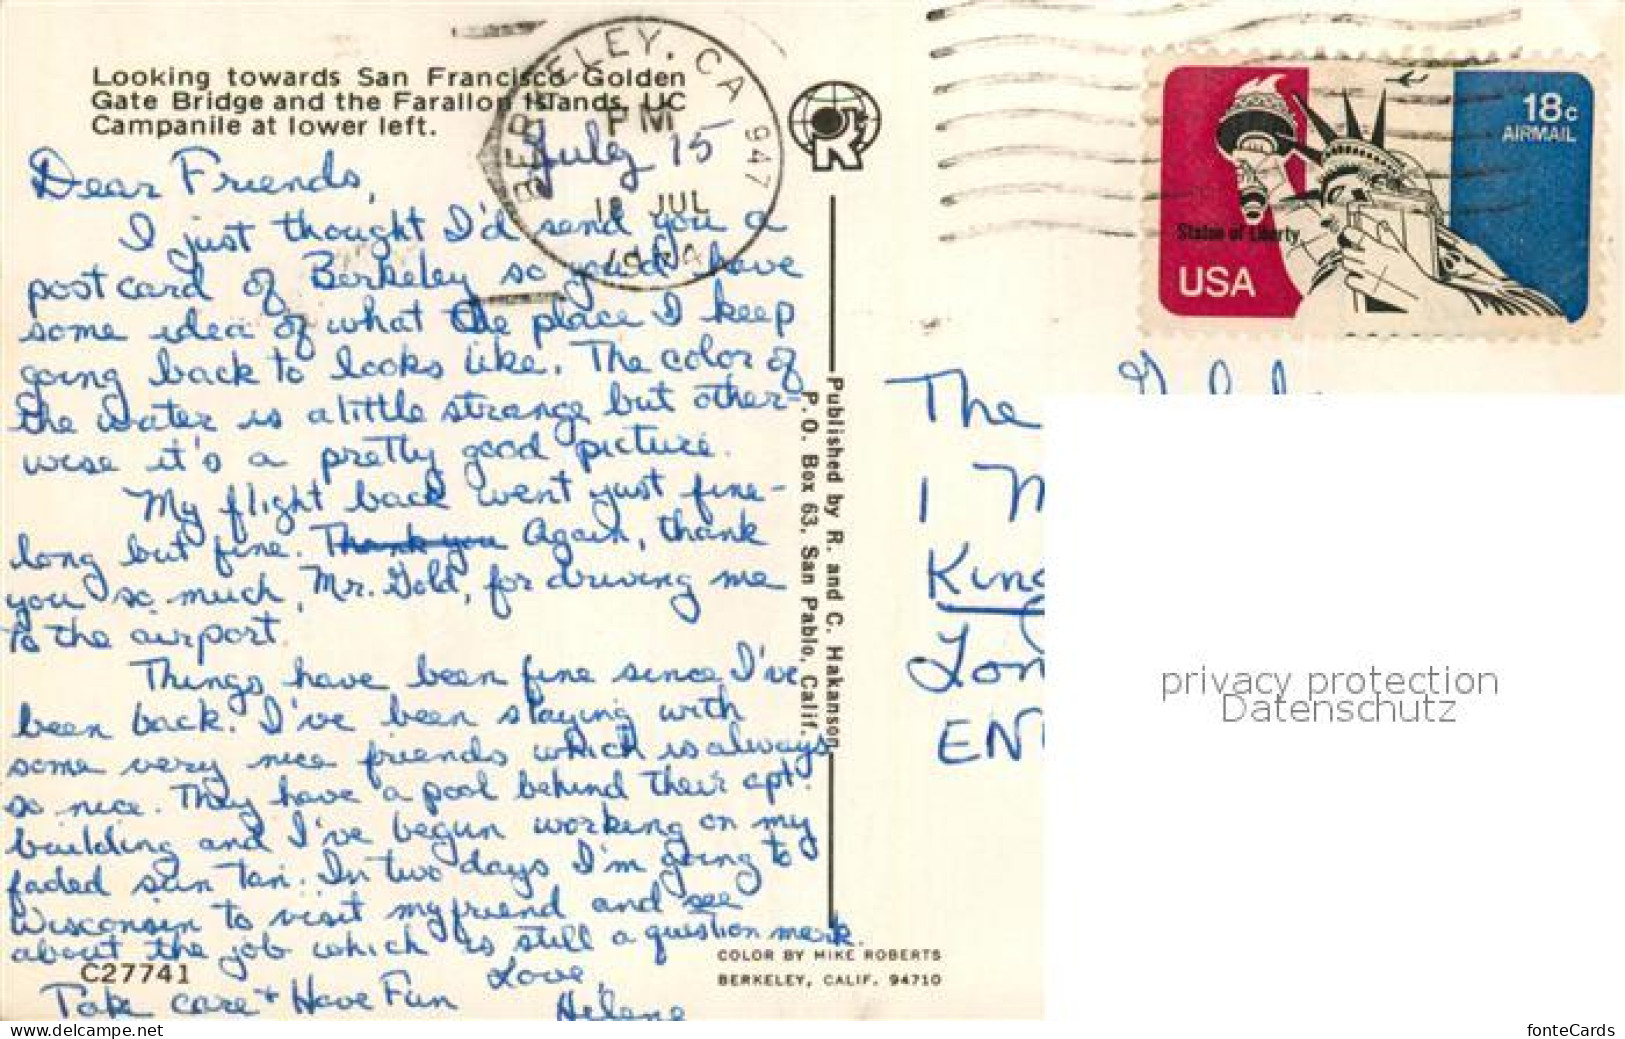 Looking towards San Francisco Golden
Gate Bridge and the Farallon Islands, UC
Campanile at lower left.
BERKELEY, CA 947
PM
18 JUL
R
18c
AIRMAIL
Statue of Liberty
USA
July 15
Dear Friends,
I just thought I'd send you a
postcard of Berkeley so you'd have
some idea of what the place I keep
going back to looks like. The color of
the water is a little strange but other-
wise it's a pretty good picture.
My flight back went just fine -
long but fine. Thank you Again, thank
you so much, Mr. Gold, for driving me
to the airport.
Things have been fine since I've
been back. I've been staying with
some very nice friends which is always
so nice. They have a pool behind their apt.
building and I've begun working on my
faded sun tan. In two days I'm going to
Wisconsin to visit my friend and see
about the job which is still a question mark.
Love,
Take care + Have Fun
Helene
C27741
Published by R. and C. Hakanson
P.O. Box 63, San Pablo, Calif.
COLOR BY MIKE ROBERTS
BERKELEY, CALIF. 94710
The
1 M
King
Lon
EN
privacy protection
Datenschutz
www.delcampe.net
fonteCards